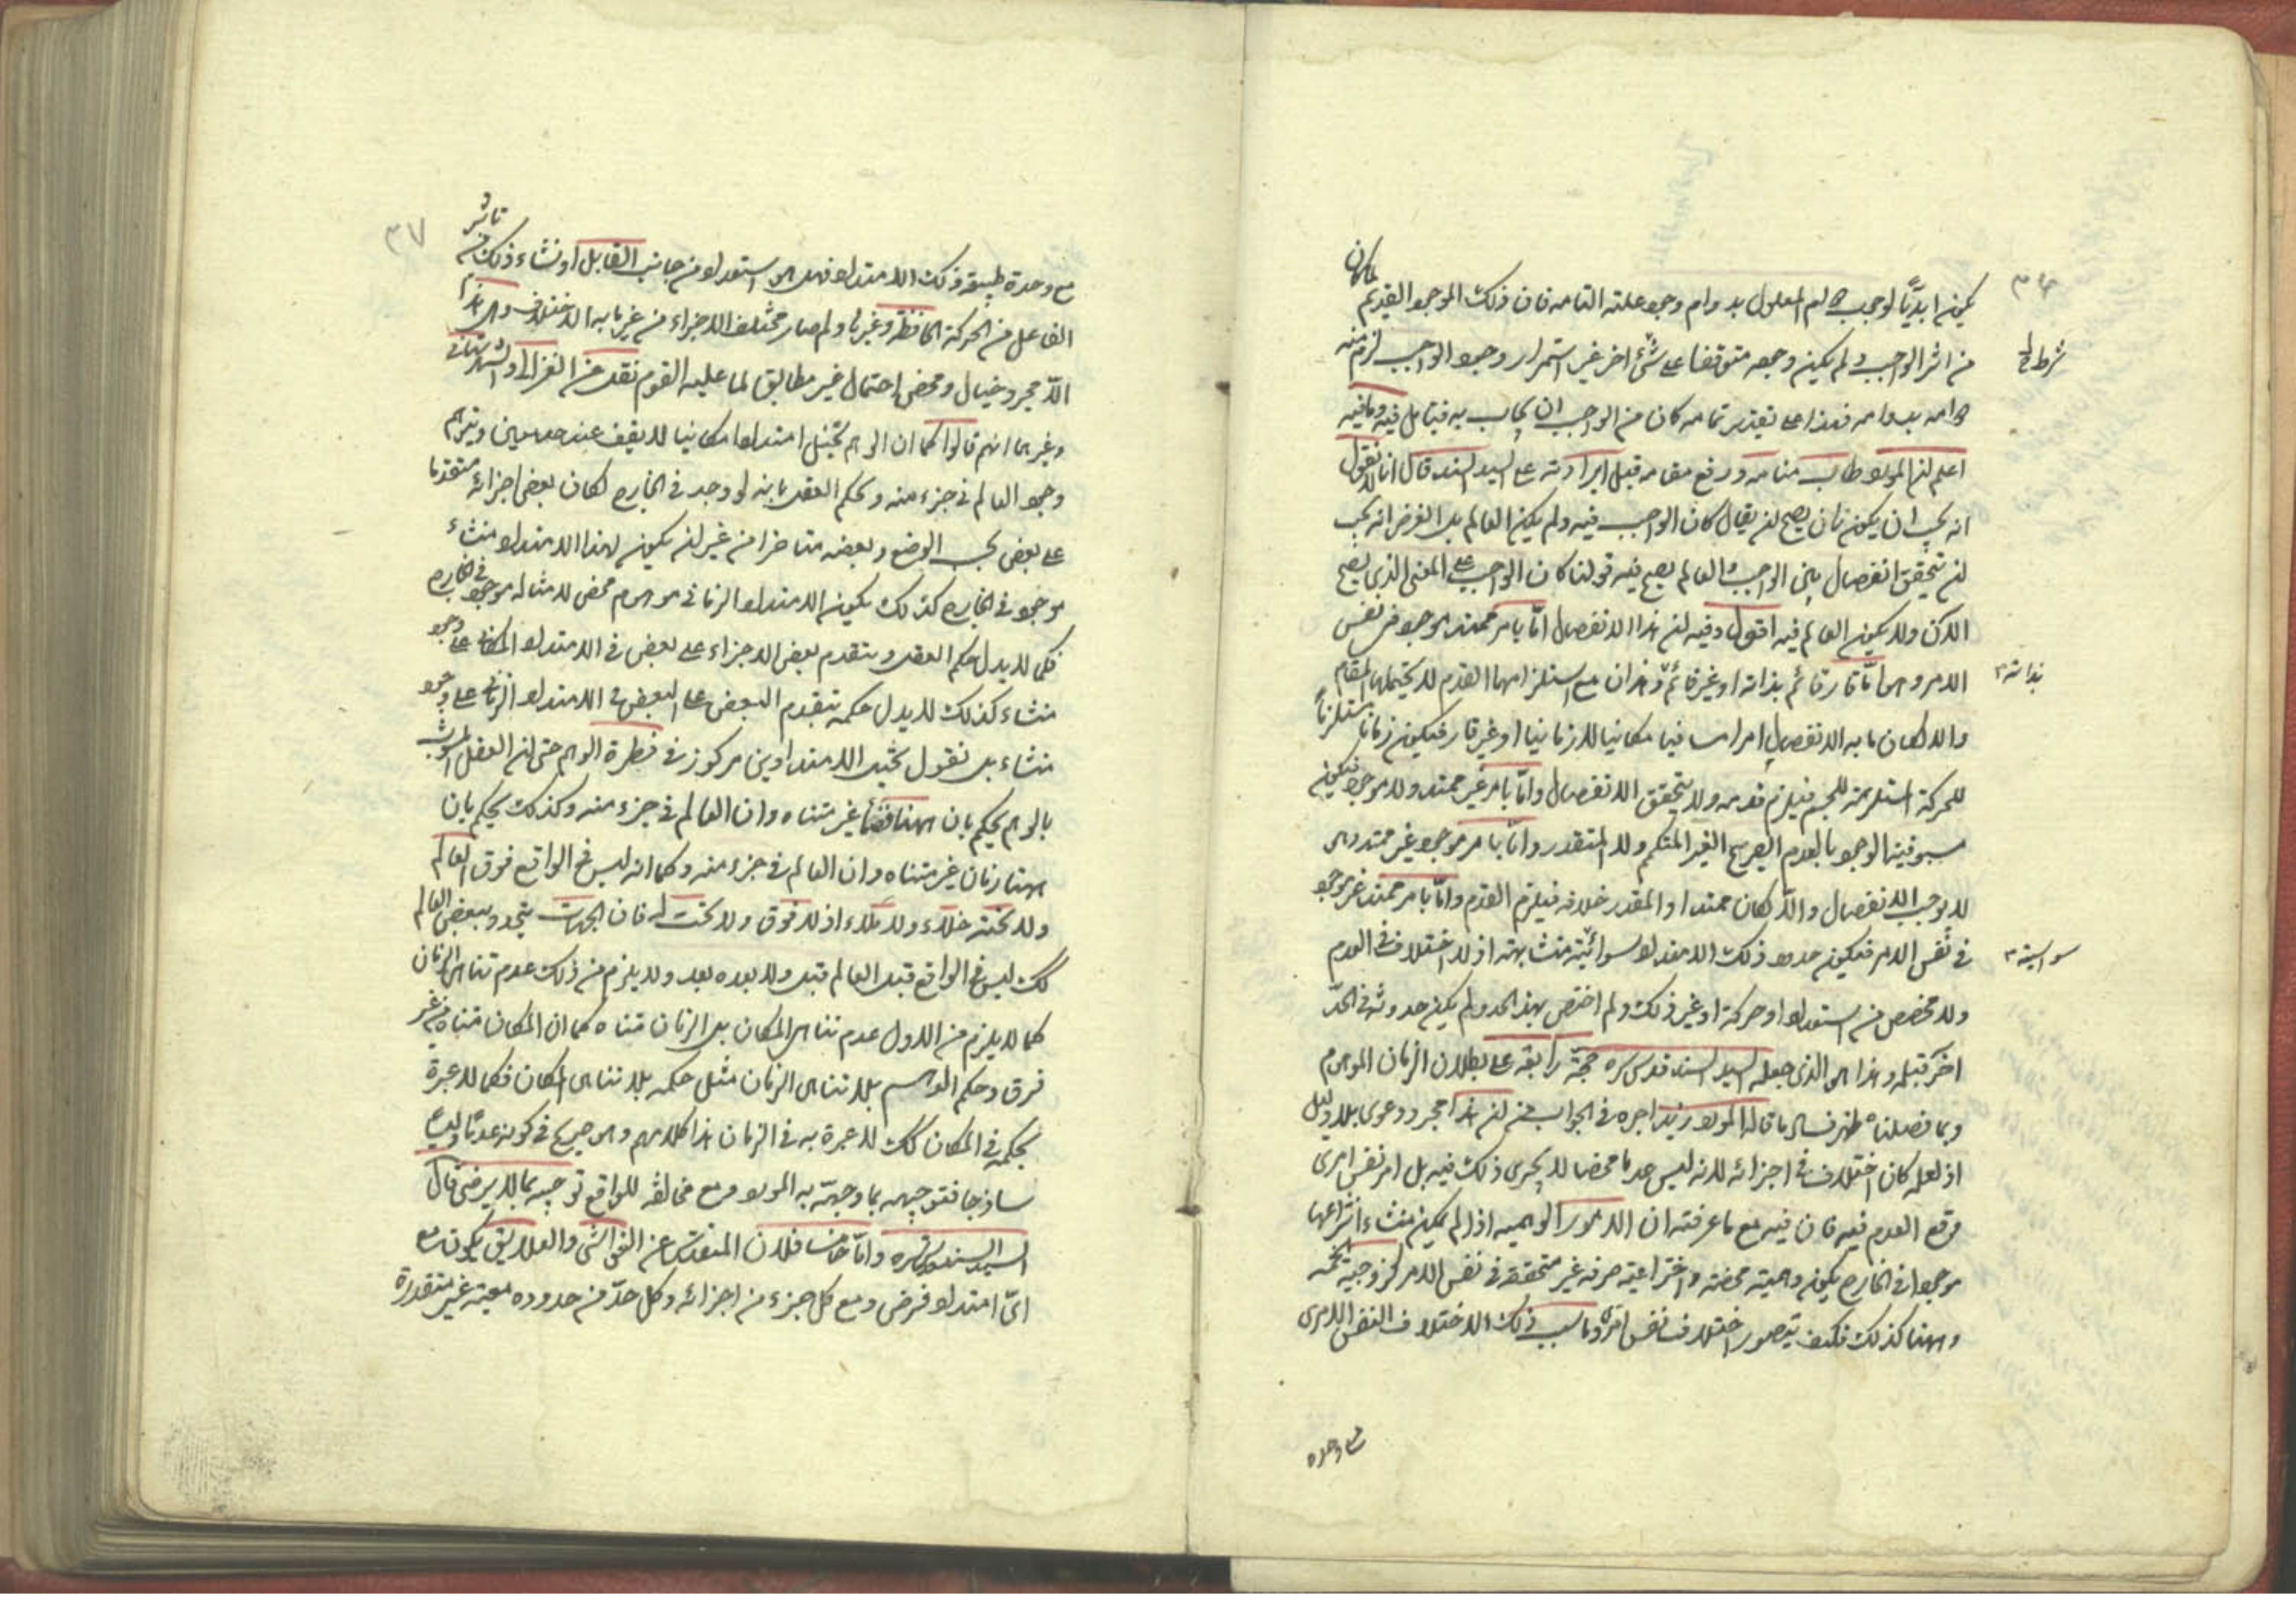 لما كان
يكون ابديًا لوجوب دوام المعلول بدوام وجود علته التامه فان ذلك الموجود القديم
من اثر الواجب ولم يكن وجوده متوقفا على شئ اخر غير استمرار وجود الواجب لزم منه
دوامه بدوامه فهذا على تقدير تمامه كان من الواجب ان يجاب به فتأمل فيه وما فيه
اعلم ان المولى طاب منامه ورفع مقامه قبل ايراداته على السيد السند قال انا لا نقول
انه يجب ان يكون زمان يصح ان يقال كان الواجب فيه ولم يكن العالم بل الغرض انه يجب
ان يتحقق انفصال بين الواجب والعالم يصح فيه قولنا كان الواجب على المعنى الذي يصح
الان ولا يكون العالم فيه اقول وفيه ان هذا الانفصال امّا بامر ممتد موجود في نفس
الامر وهو امّا قار قائم بذاته او غير قائم وهذان مع استلزامهما القدم لا يحتملها المقام
بذاته
والا لكان ما به الانفصال امرا مسافيا مكانيا لا زمانيا او غير قار فيكون زمانا مستلزماً
للحركة المستلزمة للجسم فيلزم قدمه ولا يتحقق الانفصال وامّا بامر غير ممتد ولا موجود فيكون
مسبوقية الوجود بالعدم الصريح الغير المتكمم ولا المتقدر وامّا بامر موجود غير ممتد وهو
لا يوجب الانفصال والّا لكان ممتدا والمقدر خلافه فيلزم القدم وامّا بامر ممتد غير موجود
في نفس الامر فيكون حدود ذلك الامتداد سوائيّة متشابهة اذ لا اختلاف في العدم
سواسية
ولا مخصص من استعداد او حركة او غير ذلك ولم اختص بهذا الحد ولم يكن حدوثه في الحدّ
اخر قبله وهذا هو الذي جعله السيد السند قدس سره حجّة رابعة على بطلان الزمان الموهوم
وبما فصلناه ظهر فساد ما قاله المولى زيد اجره في الجواب من ان هذا مجرد دعوى بلا دليل
اذ لعله كان اختلاف في اجزائه لانه ليس عدما محضا لا يجرى ذلك فيه بل امر نفس امرى
وقع العدم فيه فان فيه مع ما عرفته ان الامور الوهميه اذا لم يكن منشاء انتزاعها
موجودا في الخارج يكون وهمية محضة واختراعية صرفه غير متحققة في نفس الامر كزوجية الخمسة
وههنا كذلك فكيف يتصور اختلاف نفس امرى وما سبب ذلك الاختلاف النفس الامرى
مع وحدة
٣٧
مع وحدة طبيعة ذلك الامتداد فهل هو استعداد من جانب القابل او نشاء ذلك من تاثير
الفاعل من الحركة الحافظة وغيرها ولم صار مختلف الاجزاء من غير ما به الاختلاف وهل هذا
الّا مجرد خيال ومحض احتمال غير مطابق لما عليه القوم نقل عن الغزالي والشهرستاني
وغيرهما انهم قالوا كما ان الوهم يتخيل امتدادا مكانيا لا يقف عند حد معين ويتوهم
وجود العالم في جزء منه ويحكم العقل بانه لو وجد في الخارج لكان بعض اجزائه متقدما
على بعض بحسب الوضع وبعضه متاخرا من غير ان يكون لهذا الامتداد منشاء
موجود في الخارج كذلك يكون الامتداد الزماني موهوم محض لا منشا له موجود في الخارج
فكما لا يدل حكم العقل بتقدم بعض الاجزاء على بعض في الامتداد المكاني على وجود
منشاء كذلك لا يدل حكمه بتقدم البعض على البعض في الامتداد الزماني على وجود
منشاء بل نقول تخيل الامتدادين مركوز في فطرة الوهم حتى ان العقل المشوب
بالوهم يحكم بان ههنا فضاء غير متناه وان العالم في جزء منه وكذلك يحكم بان
ههنا زمان غير متناه وان العالم في جزء منه وكما انه ليس في الواقع فوق العالم
ولا تحته خلاء ولا ملاء اذ لا فوق ولا تحت له فان الجهات يتحدد ببعض العالم
كك ليس في الواقع قبل العالم قبل ولا بعده بعد ولا يلزم من ذلك عدم تناهى الزمان
كما لا يلزم من الاول عدم تناهى المكان بل الزمان متناه كما ان المكان متناه من غير
فرق وحكم الوهم بلا تناهى الزمان مثل حكمه بلا تناهى المكان فكما لا عبرة
بحكمه في المكان كك لا عبرة به في الزمان هذا كلامهم وهو صريح في كونه عدما وليسا
ساذجا فتوجيهه بما وجهّه به المولى مع مخالفه للواقع توجيه بما لا يرضى قال
السيد السند قدس سره وامّا خامسا فلان المتقدس عن الغواشى والعلايق يكون مع
اىّ امتداد فرض ومع كل جزء من اجزائه وكل حدّ من حدوده معية غير متقدرة